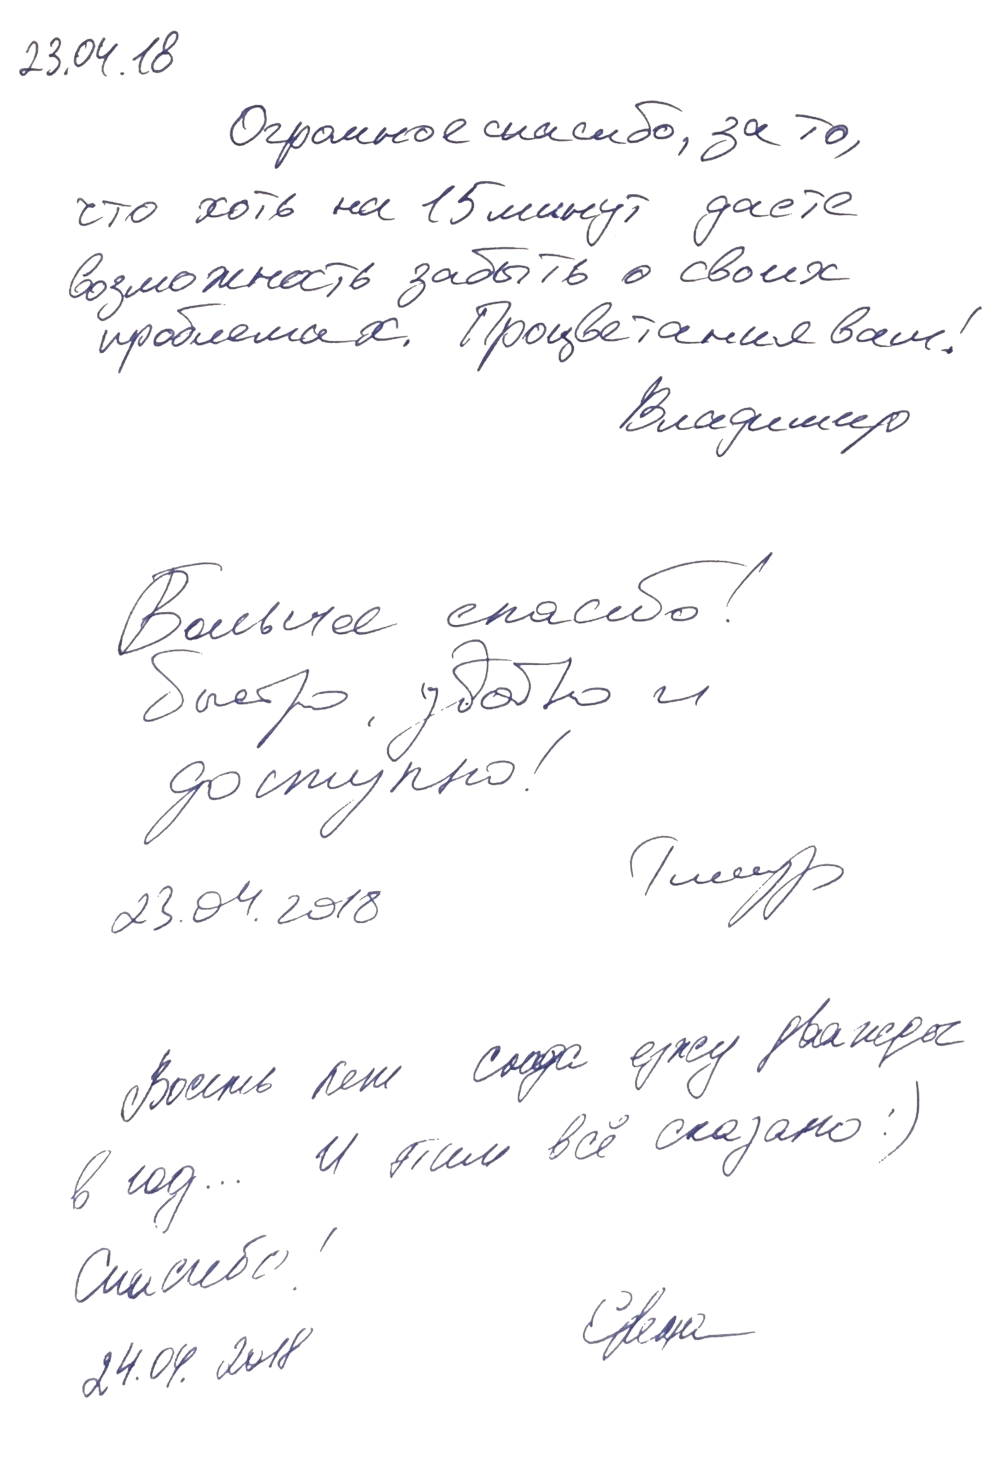 23.04.18
Огромное спасибо, за то,
что хоть на 15 минут даете
возможность забыть о своих
проблемах. Процветания вам!
Владимир
Большое спасибо!
Быстро, удобно и
доступно!
Тимур
23.04.2018
Восемь лет сюда езжу дважды
в год... И этим всё сказано :)
Спасибо!
24.04.2018